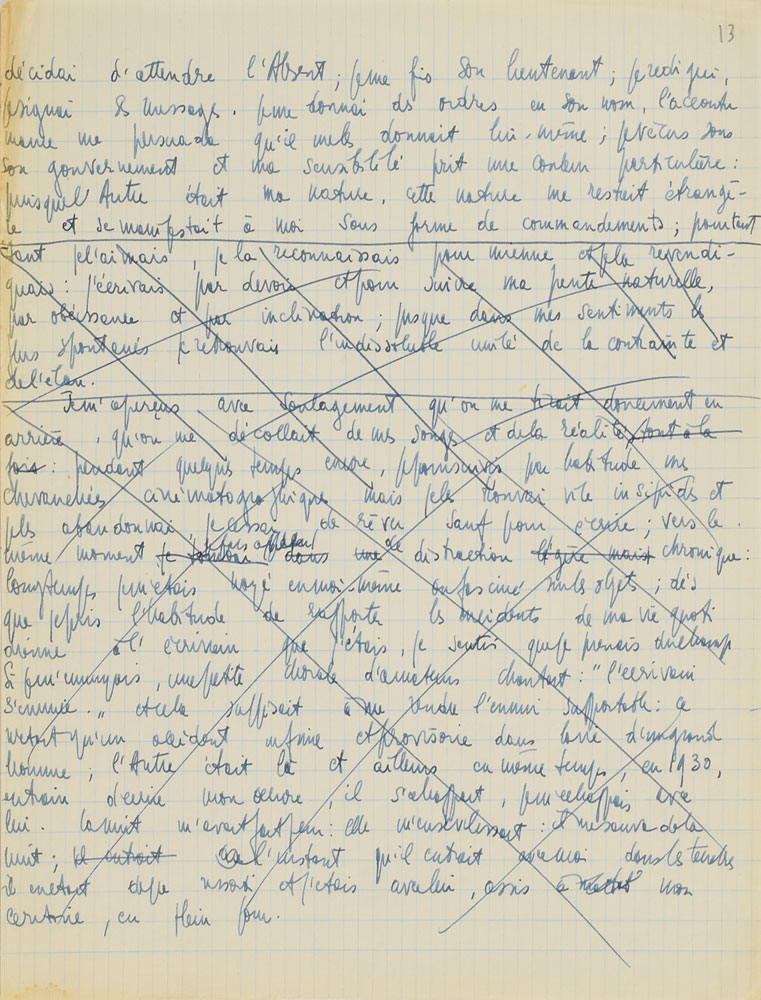 13
décidai d'attendre l'Absent ; je me fis son lieutenant ; je rédigeai,
je signai ses messages. je me donnai des ordres en son nom, l'accoutu
mance me persuada qu'il me les donnait lui-même ; je vécus sous
son gouvernement et ma sensibilité prit une couleur particulière :
puisque l'Autre était ma nature, cette nature me restait étrangè-
re et se manifestait à moi sous forme de commandements ; pourtant
tant je l'aimais, je la reconnaissais pour mienne et je la revendi-
quais : j'écrivais par devoir et pour suivre ma pente naturelle,
par obéissance et par inclination ; jusque dans mes sentiments les
plus spontanés je retrouvais l'indissoluble unité de la contrainte et
de l'élan.
Je m'aperçus avec soulagement qu'on me tirait doucement en
arrière, qu'on me décollait de mes songes et de la réalité, tout à la
fois : pendant quelque temps encore, je poursuivis par habitude mes
chevauchées cinématographiques mais je les trouvai vite insipides et
je les abandonnai, je cessai de rêver sauf pour écrire ; vers le
même moment je tombai dans une de distraction légère mais chronique :
longtemps je m'étais noyé en moi-même ou fasciné sur les objets ; dès
que je pris l'habitude de rapporter les incidents de ma vie quoti
dienne à l'écrivain que j'étais, je sentis que je prenais du champ
Si je m'ennuyais, une petite chorale d'amateurs chantait : "l'écrivain
s'ennuie." et cela suffisait à me rendre l'ennui supportable : ce
n'était qu'un accident infime et provisoire dans la vie d'un grand
homme ; l'Autre était là et ailleurs en même temps, en 1930,
en train d'écrire mon œuvre, il s'échappait, je m'échappais avec
lui. La nuit m'avait fait peur : elle m'ensevelissait : il me sauva de la
nuit ; il entrait à l'instant qu'il entrait avec moi dans les ténèbres
il en était déjà ressorti et j'étais avec lui, assis à mon
centenaire, en plein jour.